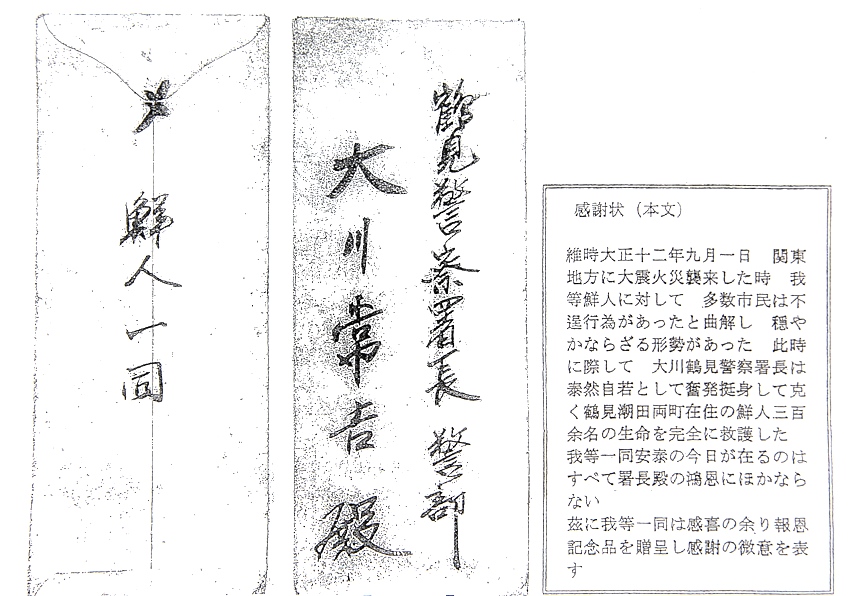 鶴見警察署長 警部
大川常吉殿
鮮人一同
感謝状（本文）
維時大正十二年九月一日　関東
地方に大震火災襲来した時　我
等鮮人に対して　多数市民は不
逞行為があったと曲解し　穏や
かならざる形勢があった　此時
に際して　大川鶴見警察署長は
泰然自若として奮発挺身して克
く鶴見潮田両町在住の鮮人三百
余名の生命を完全に救護した
我等一同安泰の今日が在るのは
すべて署長殿の鴻恩にほかなら
ない
茲に我等一同は感喜の余り報恩
記念品を贈呈し感謝の微意を表
す